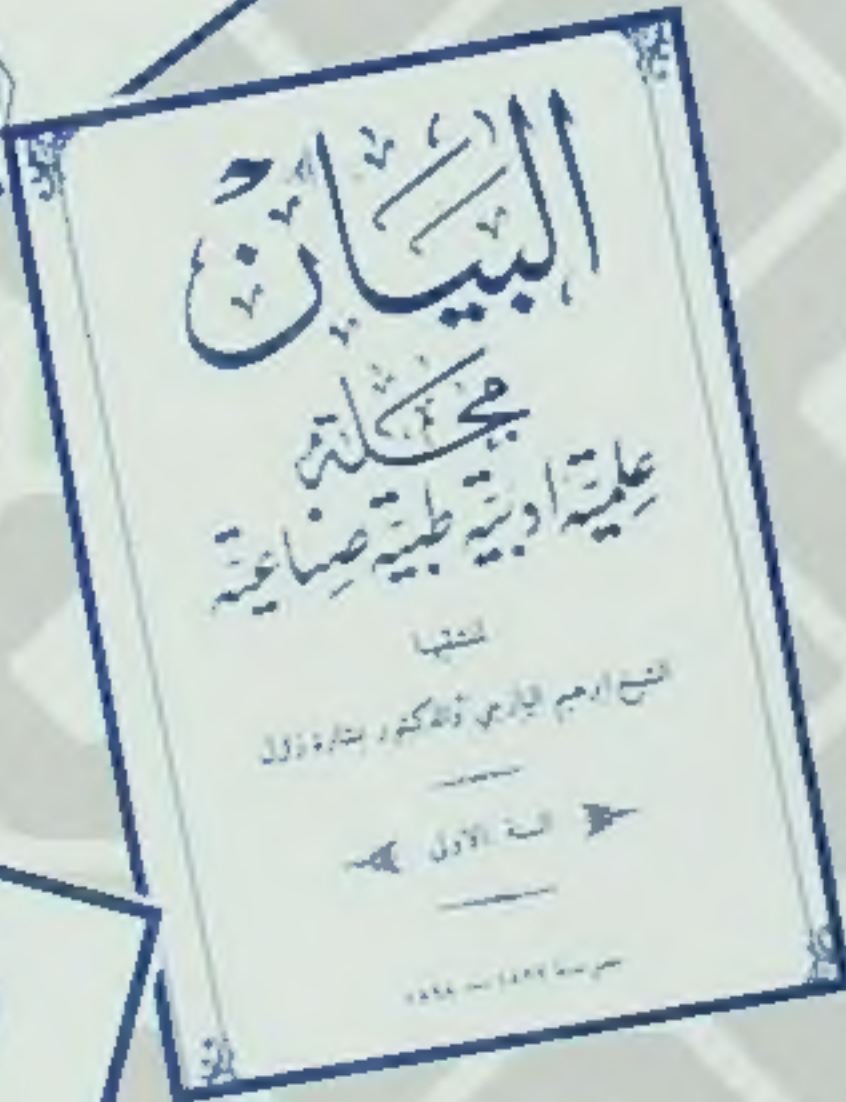 البيان
مجلة
علمية ادبية طبية صناعية
لمنشئيها
الشيخ ابرهيم اليازجي والدكتور بشارة زلزل
السنة الاولى
١٨٩٧ — ١٨٩٨